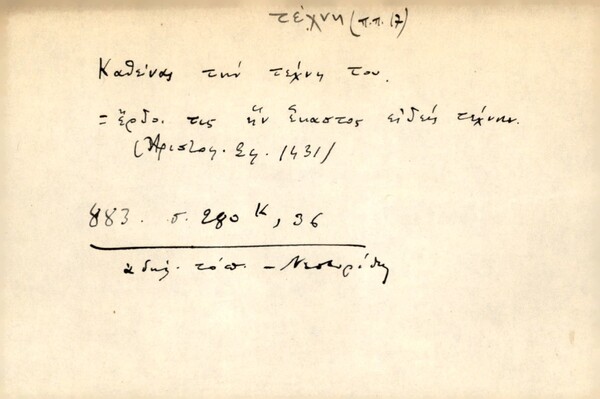 τέχνη (π.π. 17)
Καθένας την τέχνη του.
= ἔρδοι τις ἣν ἕκαστος εἰδείη τέχνην.
(Ἀριστοφ. Σφ. 1431)
883. σ. 280 Κ, 36
ἀδήλ. τόπ. –